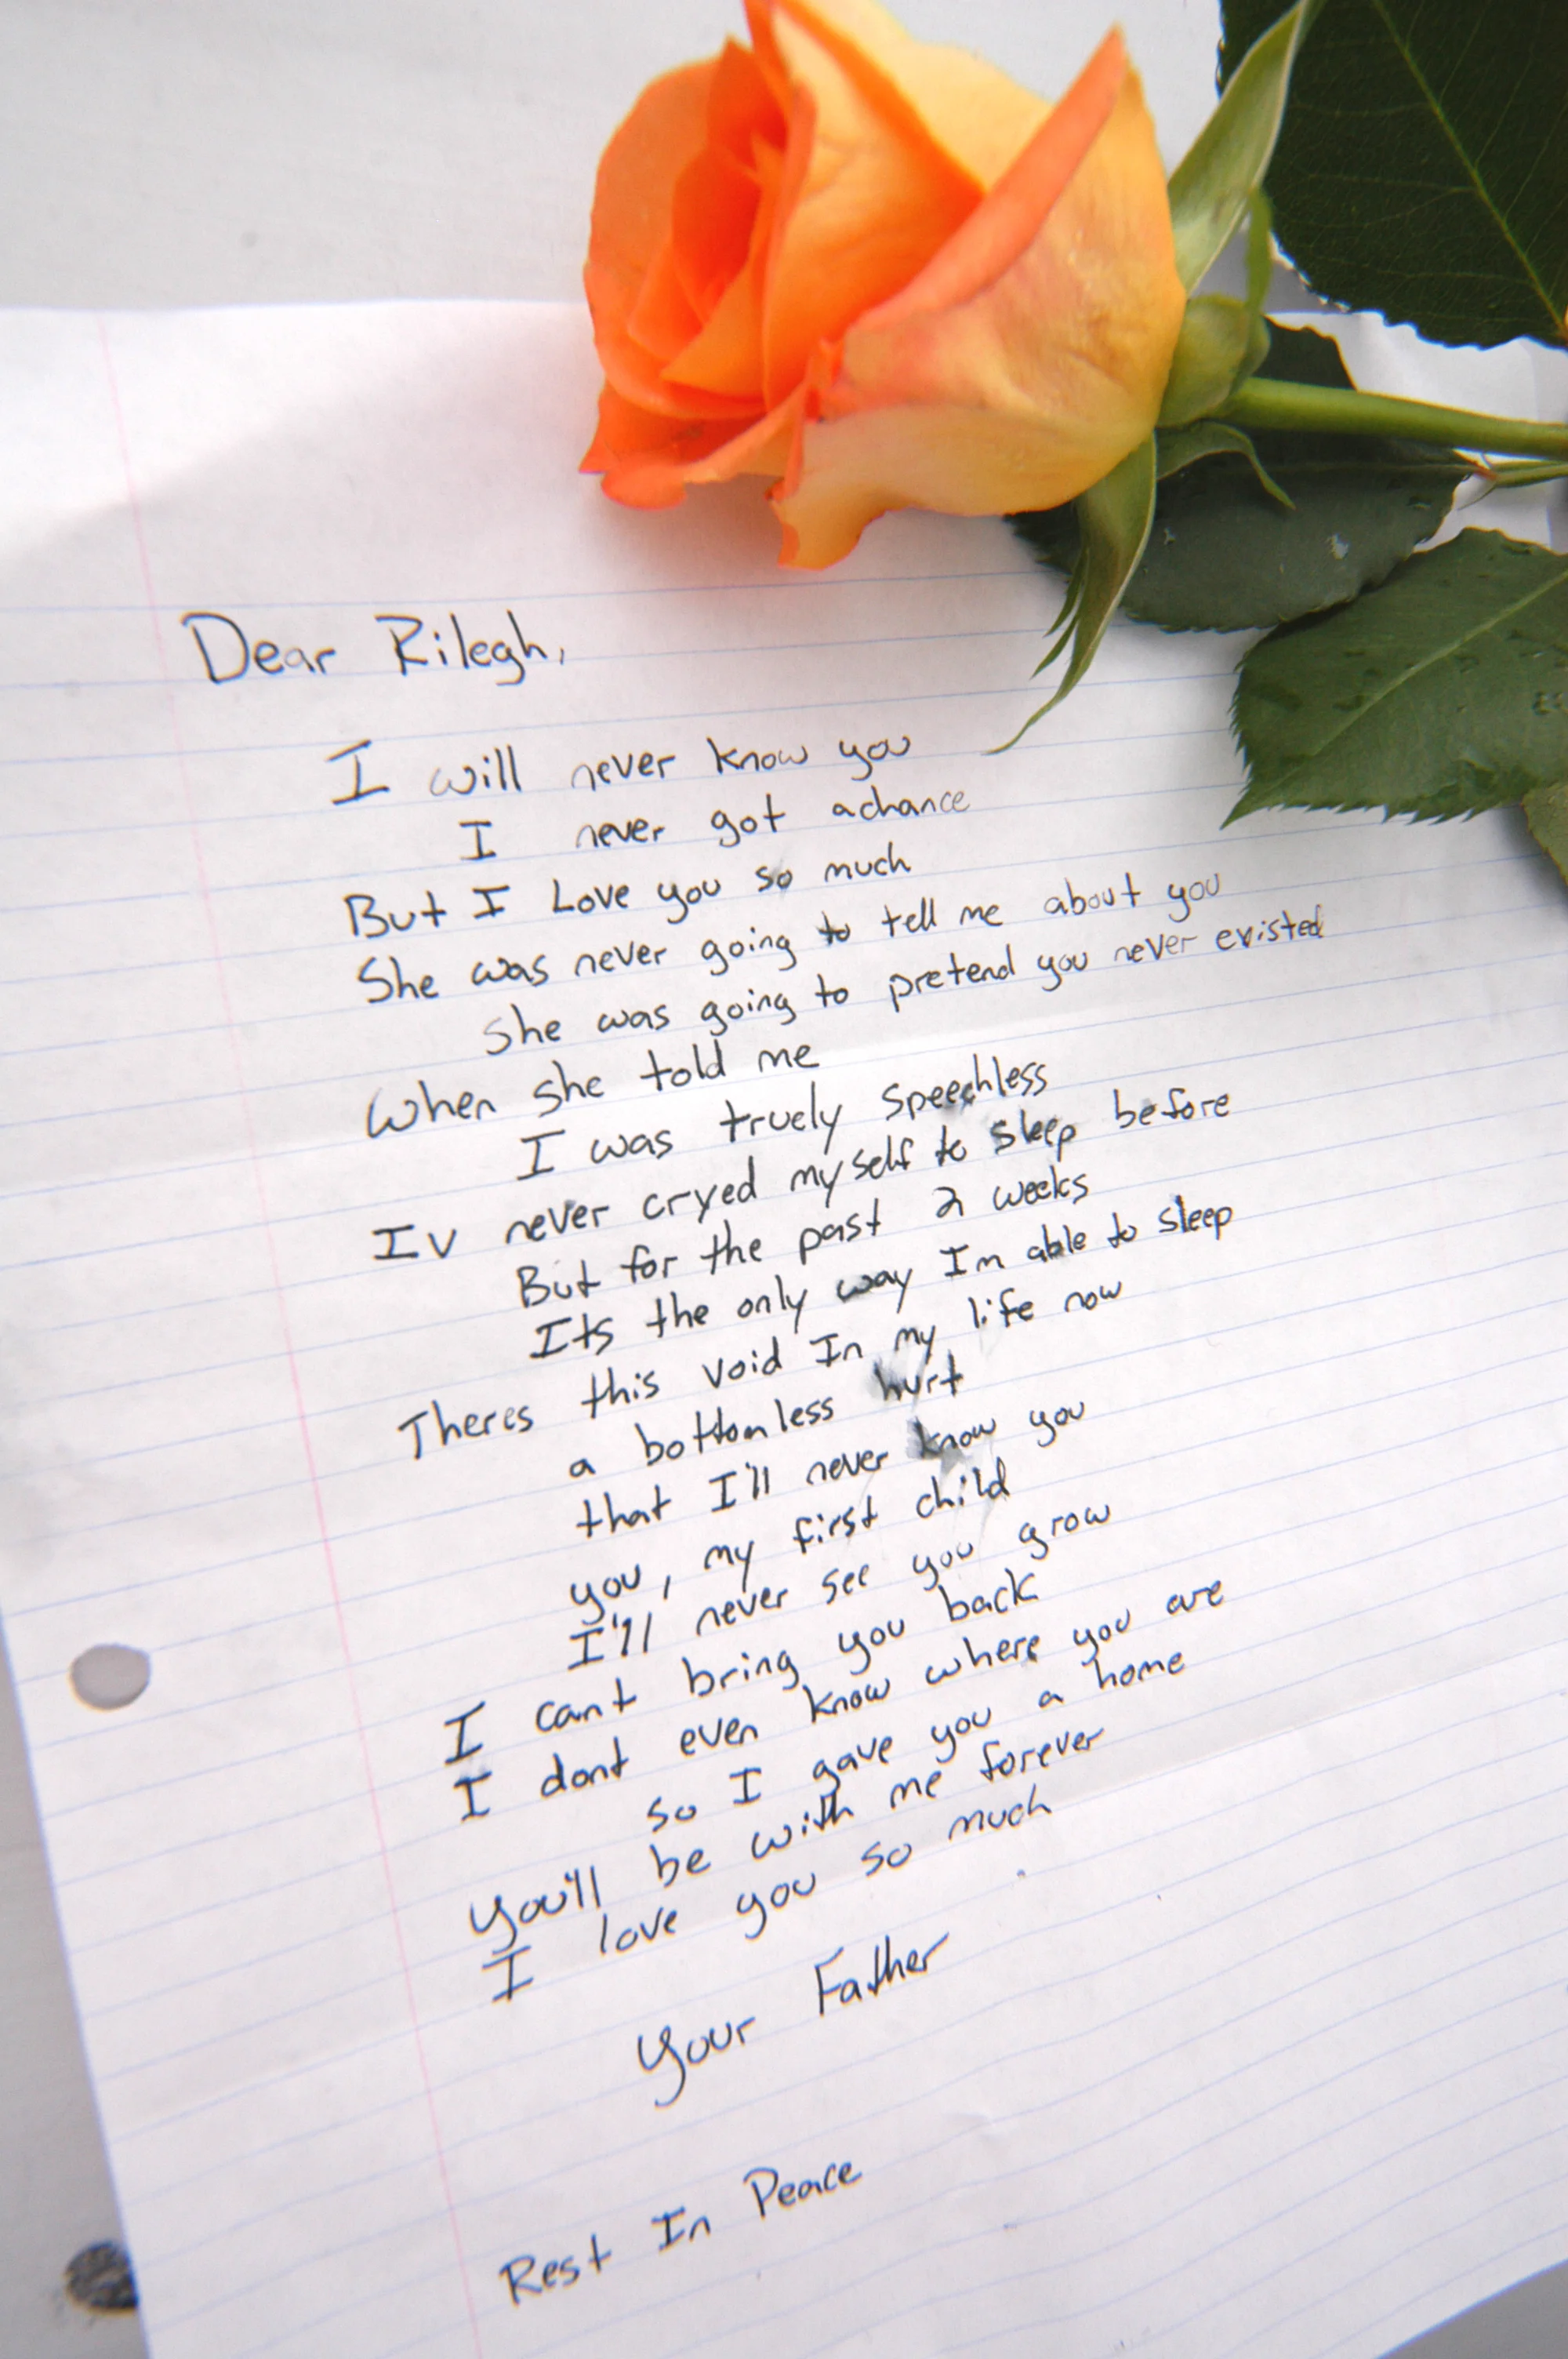 Dear Rilegh,
I will never know you
I never got a chance
But I Love you so much
She was never going to tell me about you
She was going to pretend you never existed
When she told me
I was truely speechless
Iv never cryed myself to sleep before
But for the past 2 weeks
Its the only way Im able to sleep
Theres this void In my life now
a bottomless hurt
that I'll never know you
you, my first child
I'll never see you grow
I cant bring you back
I dont even know where you are
so I gave you a home
you'll be with me forever
I love you so much
Your Father
Rest In Peace